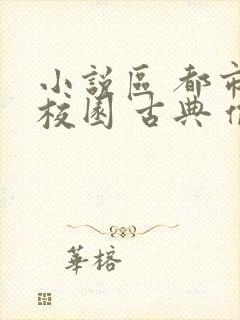 小說區 都市
校園 古典
華榕